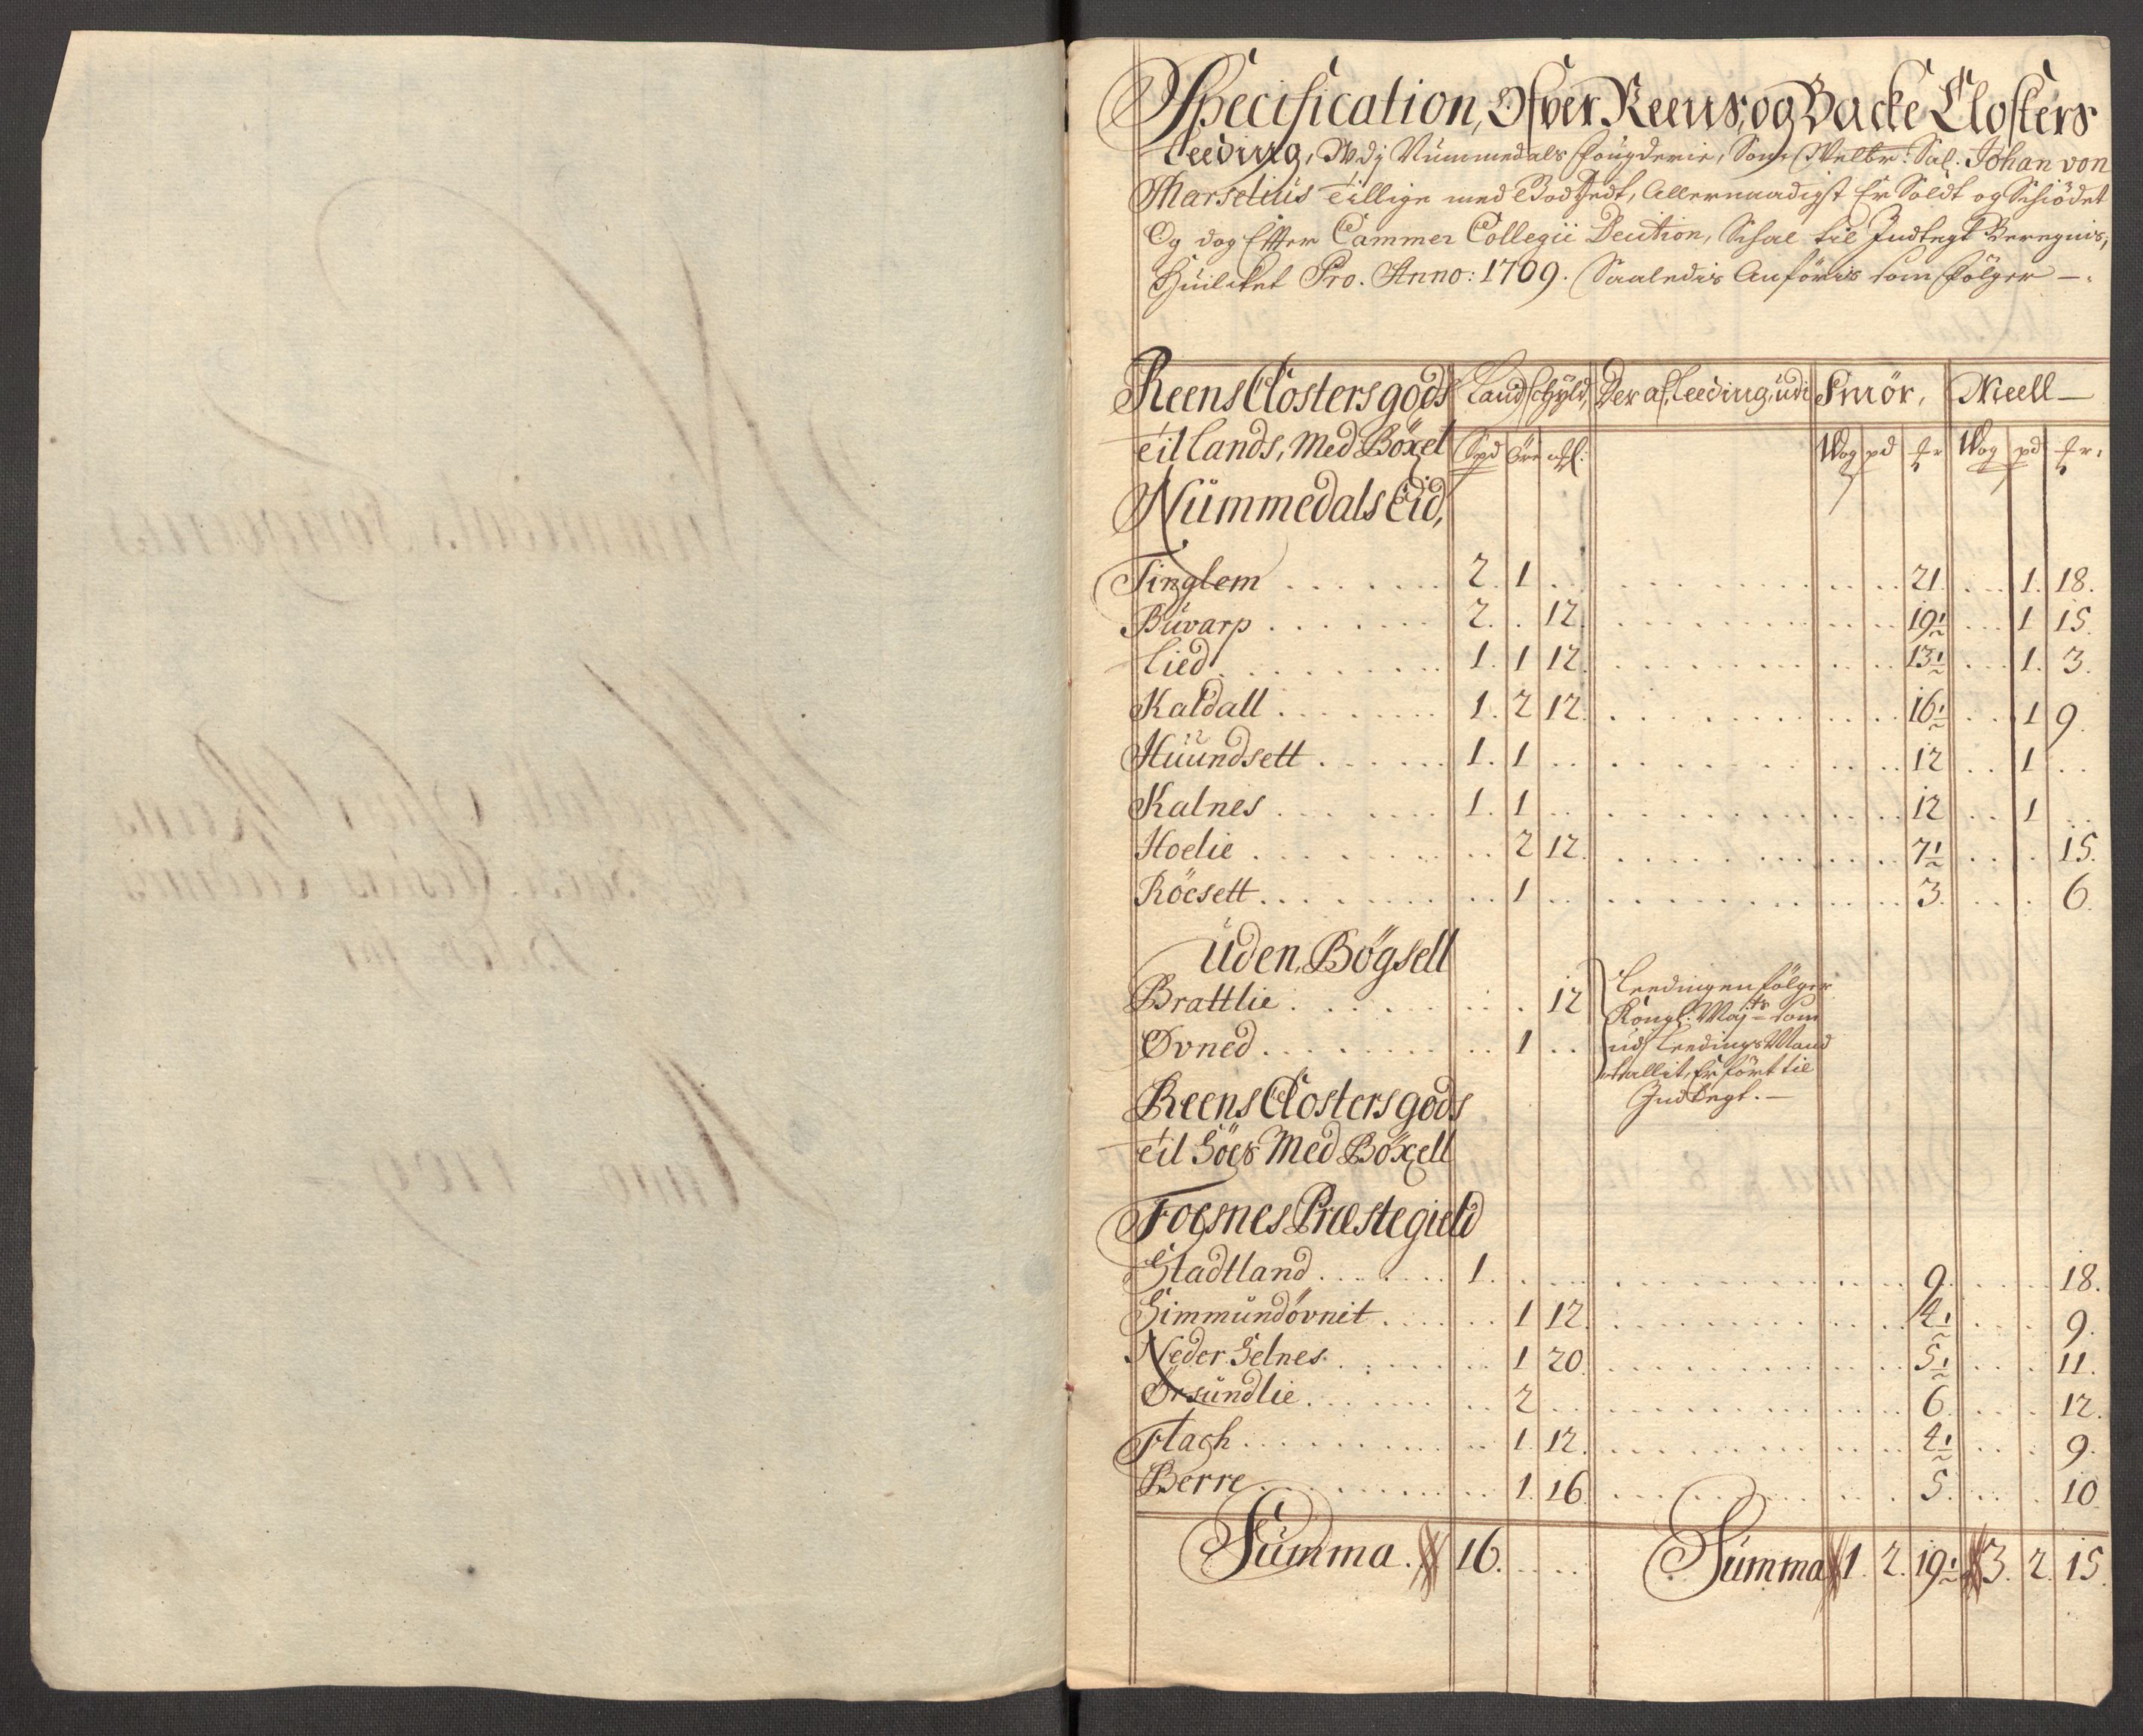 Specification, Ofver Reens, og Backe Closters
Leeding, Udj Nummedals Fougderie, Som Welbr: Sal. Johan von
Marselius Tillige med Godtzedt, Allernaadigst Er Soldt og Schiödet
Og dog Effter Cammer Collegii Decition, Schal til Indtegt Beregnis,
Huilcket Pro. Anno: 1709. Saaledis Anföris som fölger —.
Reens Closters gods | Land schyld, | Der af, Leeding, udi | Smör, | Meell —
til Lands, Med Böxel | Spd | Öre | mk: | | Wog | pd | mk | Wog | pd | mk:
Nümmedals Eid,
Tinglem . . . 2. 1 . . 21. . . 1. 18.
Büvarp . . . 2. . 12. . . 19½ . . 1 15.
Lied . . . 1. 1 12. . . 13½ . . 1. 3.
Kaldall . . . 1. 2 12. . . 16½ . . 1 9.
Huündsett . . . 1. 1 . . 12 . . 1 . .
Kalnes . . . 1. 1 . . 12 . . 1 . .
Hoelie . . . 2 12. . . 7½ . . 15.
Röesett . . . 1 . . 3. . . 6.
Uden, Bögsell
Brattlie . . . 12
Øvned . . . 1 . .
Leedingen fölger
Kongl: Maj:ts som
udj Leedings Mand
tallit, Er fört til
Indtegt. —
Reens Closters gods
til Söes Med Böxell
Foesnes Præstegield
Stadtland . . . 1. . . 9. . . 18.
Simmundövnit . . . 1 12. . . 4½ . . 9.
Neder Selnes . . . 1 20. . . 5½ . . 11.
Ørsündlie . . . 2 . . 6. . . 12.
Flach . . . 1. 12. . . 4½ . . 9.
Berre . . . 1. 16. . . 5. . . 10.
Summa. 16. . . Summa 1. 2. 19½ 3. 2. 15.